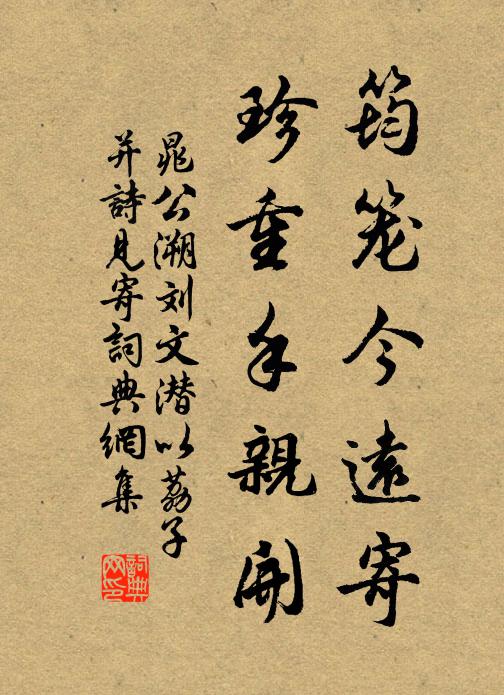 筠笼今遠寄
珍重手親開
晁公溯刘文潜以荔子
并詩見寄詞典網集
詞典
网印